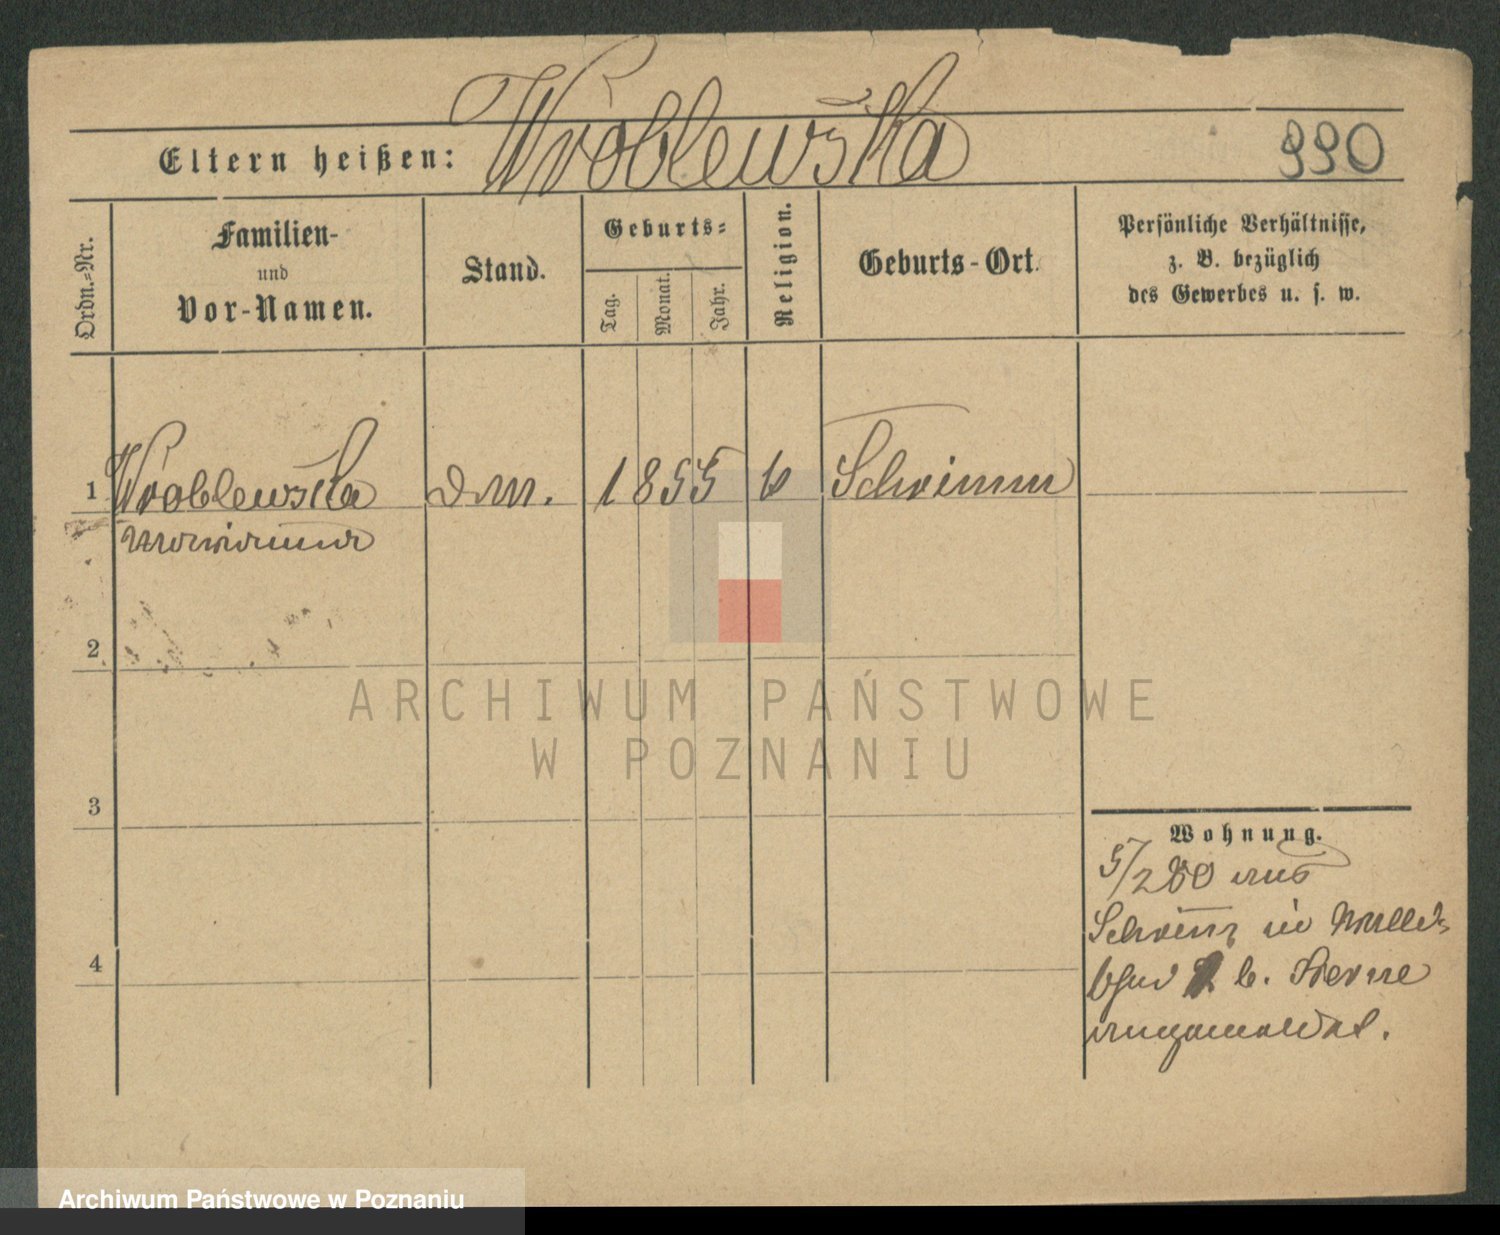 Wróblewska
Eltern heißen:
990
Ordn.-Nr.
Familien-
und
Vor-Namen.
Stand.
Geburts-
Tag.
Monat.
Jahr.
Religion.
Geburts-Ort.
Persönliche Verhältnisse,
z. B. bezüglich
des Gewerbes u. s. w.
1 Wroblewska 1855 Schrimm
2
3
4
Wohnung.
5/2 80 aus
Schrimm in
b.
angemeldet.
ARCHIWUM PAŃSTWOWE
W POZNANIU
Archiwum Państwowe w Poznaniu